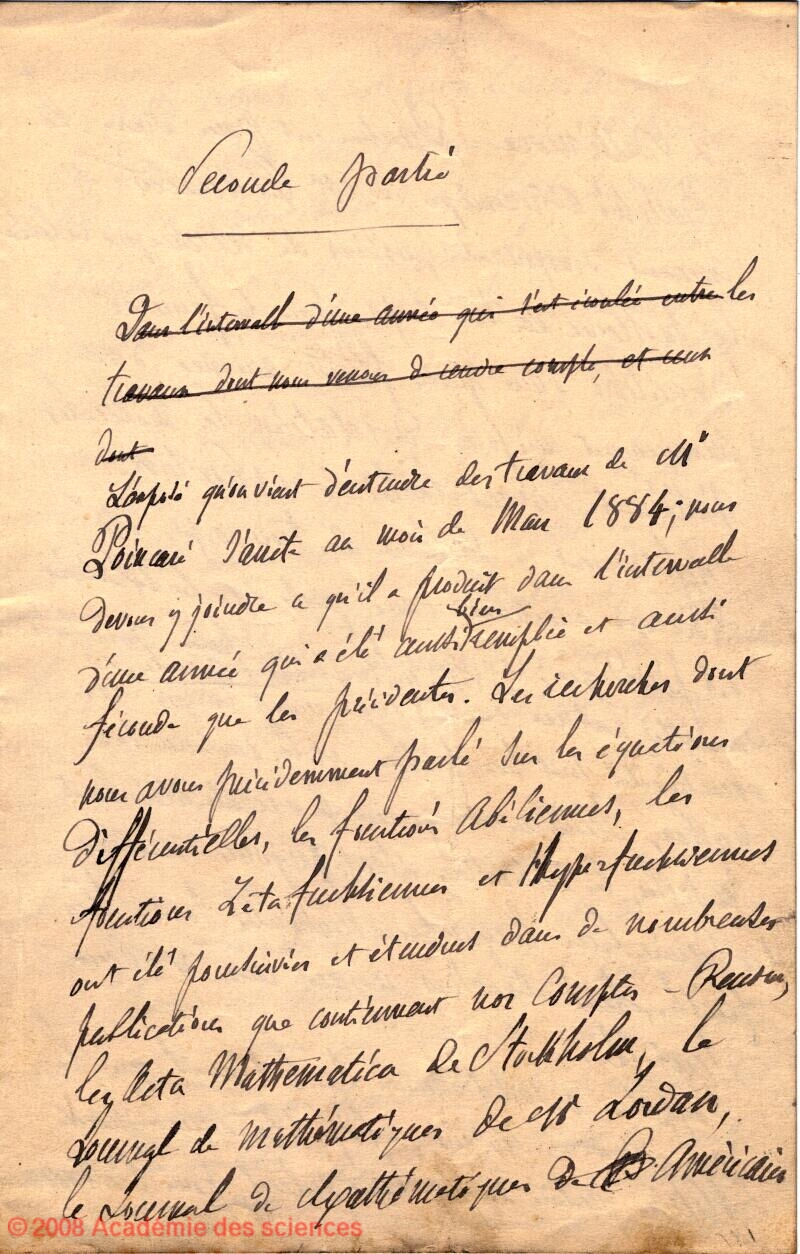 Seconde partie
Dans l'intervalle d'une année qui s'est écoulée entre les
travaux dont nous venons de rendre compte, et ceux
dont
L'exposé qu'on vient d'entendre des travaux de Mr
Poincaré s'arrête au mois de Mars 1884; nous
devons y joindre ce qu'il a produit dans l'intervalle
d'une année qui a été aussi bien remplie et aussi
féconde que les précédentes. Les recherches dont
nous avons précédemment parlé sur les équations
différentielles, les fonctions Abéliennes, les
fonctions Zétafuchsiennes et Hyperfuchsiennes
ont été poursuivies et étendues dans de nombreuses
publications que contiennent nos Comptes-Rendus,
les Acta Mathematica de Stockholm, le
Journal de mathématiques de Mr Jordan,
le Journal de Mathématiques de Américain
© 2008 Académie des sciences